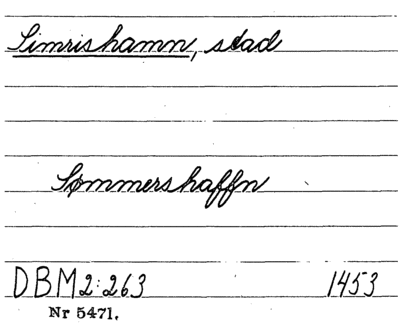 Simrishamn, stad
Sømmershaffn
DBM 2:263 1453
Nr 5471.